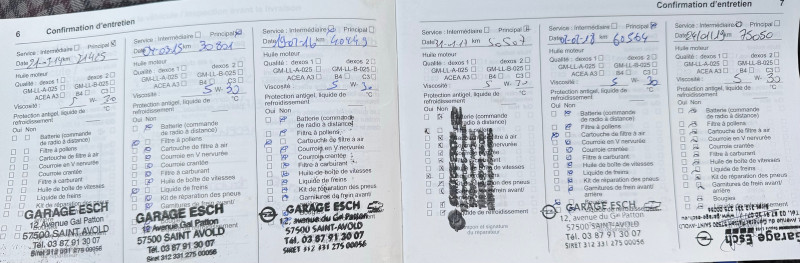 6
Confirmation d'entretien
Service : Intermédiaire Principal
Date 21-7-14 km 21425
Huile moteur
Qualité : dexos 1 dexos 2
GM-LL-A-025 GM-LL-B-025
ACEA A3 B4 C3
Viscosité : 5 W- 30
Protection antigel, liquide de
refroidissement °C
Oui Non
Batterie (commande
de radio à distance)
Filtre à pollens
Cartouche de filtre à air
Courroie en V nervurée
Courroie crantée
Filtre à carburant
Huile de boîte de vitesses
Liquide de freins
Kit de réparation
GARAGE ESCH
12, Avenue Gal Patton
57500 SAINT AVOLD
Tél. 03 87 91 30 07
Siret 312 331 275 00056
Service : Intermédiaire Principal
Date 07-07-15 km 30801
Huile moteur
Qualité : dexos 1 dexos 2
GM-LL-A-025 GM-LL-B-025
ACEA A3 B4 C3
Viscosité : 5 W- 30
Protection antigel, liquide de
refroidissement °C
Oui Non
Batterie (commande
de radio à distance)
Filtre à pollens
Cartouche de filtre à air
Courroie en V nervurée
Courroie crantée
Filtre à carburant
Huile de boîte de vitesses
Liquide de freins
Kit de réparation des pneus
Garnitures de frein avant/
GARAGE ESCH
12 Avenue Gal Patton
57500 SAINT AVOLD
Tél. 03 87 91 30 07
SIRET 312 331 275 00056
Service : Intermédiaire Principal
Date km 40443
Huile moteur
Qualité : dexos 1 dexos 2
GM-LL-A-025 GM-LL-B-025
ACEA A3 B4 C3
Viscosité : 5 W- 30
Protection antigel, liquide de
refroidissement °C
Oui Non
Batterie (commande
de radio à distance)
Filtre à pollens
Cartouche de filtre à air
Courroie en V nervurée
Courroie crantée
Filtre à carburant
Huile de boîte de vitesses
Liquide de freins
Kit de réparation des pneus
Garnitures de frein avant/
GARAGE ESCH
12, avenue du Gal Patton
57500 SAINT-AVOLD
Tél. 03 87 91 30 07
SIRET 312 331 275 00056
Confirmation d'entretien
7
Service : Intermédiaire Principal
Date 31-1-17 km 50507
Huile moteur
Qualité : dexos 1 dexos 2
GM-LL-A-025 GM-LL-B-025
ACEA A3 B4 C3
Viscosité : 5 W- 30
Protection antigel, liquide de
refroidissement °C
Oui Non
(commande
à distance)
pollens
de filtre à air
nervurée
crantée
de vitesses
de freins
des pneus
de frein avant/
de refroidissement
et signature
du réparateur
Service : Intermédiaire Principal
Date km 60564
Huile moteur
Qualité : dexos 1 dexos 2
GM-LL-A-025 GM-LL-B-025
ACEA A3 B4 C3
Viscosité : 5 W- 30
Protection antigel, liquide de
refroidissement °C
Oui Non
Batterie (commande
de radio à distance)
Filtre à pollens
Cartouche de filtre à air
Courroie en V nervurée
Courroie crantée
Filtre à carburant
Huile de boîte de vitesses
Liquide de freins
Kit de réparation des pneus
Garnitures de frein avant/
arrière
GARAGE ESCH
12, avenue du Gal Patton
57500 SAINT-AVOLD
Tél. 03 87 91 30 07
SIRET 312 331 275 00056
Service : Intermédiaire Principal
Date 24/01/19 km 75050
Huile moteur
Qualité : dexos 1 dexos 2
GM-LL-A-025 GM-LL-B-025
ACEA A3 B4 C3
Viscosité : 5 W- 30
Protection antigel, liquide de
refroidissement °C
Oui Non
Batterie (commande
de radio à distance)
Filtre à pollens
Cartouche de filtre à air
Courroie en V nervurée
Courroie crantée
Filtre à carburant
Huile de boîte de vitesses
Liquide de freins
Kit de réparation des pneus
Garnitures de frein avant/
arrière
Bougies
Garage Esch